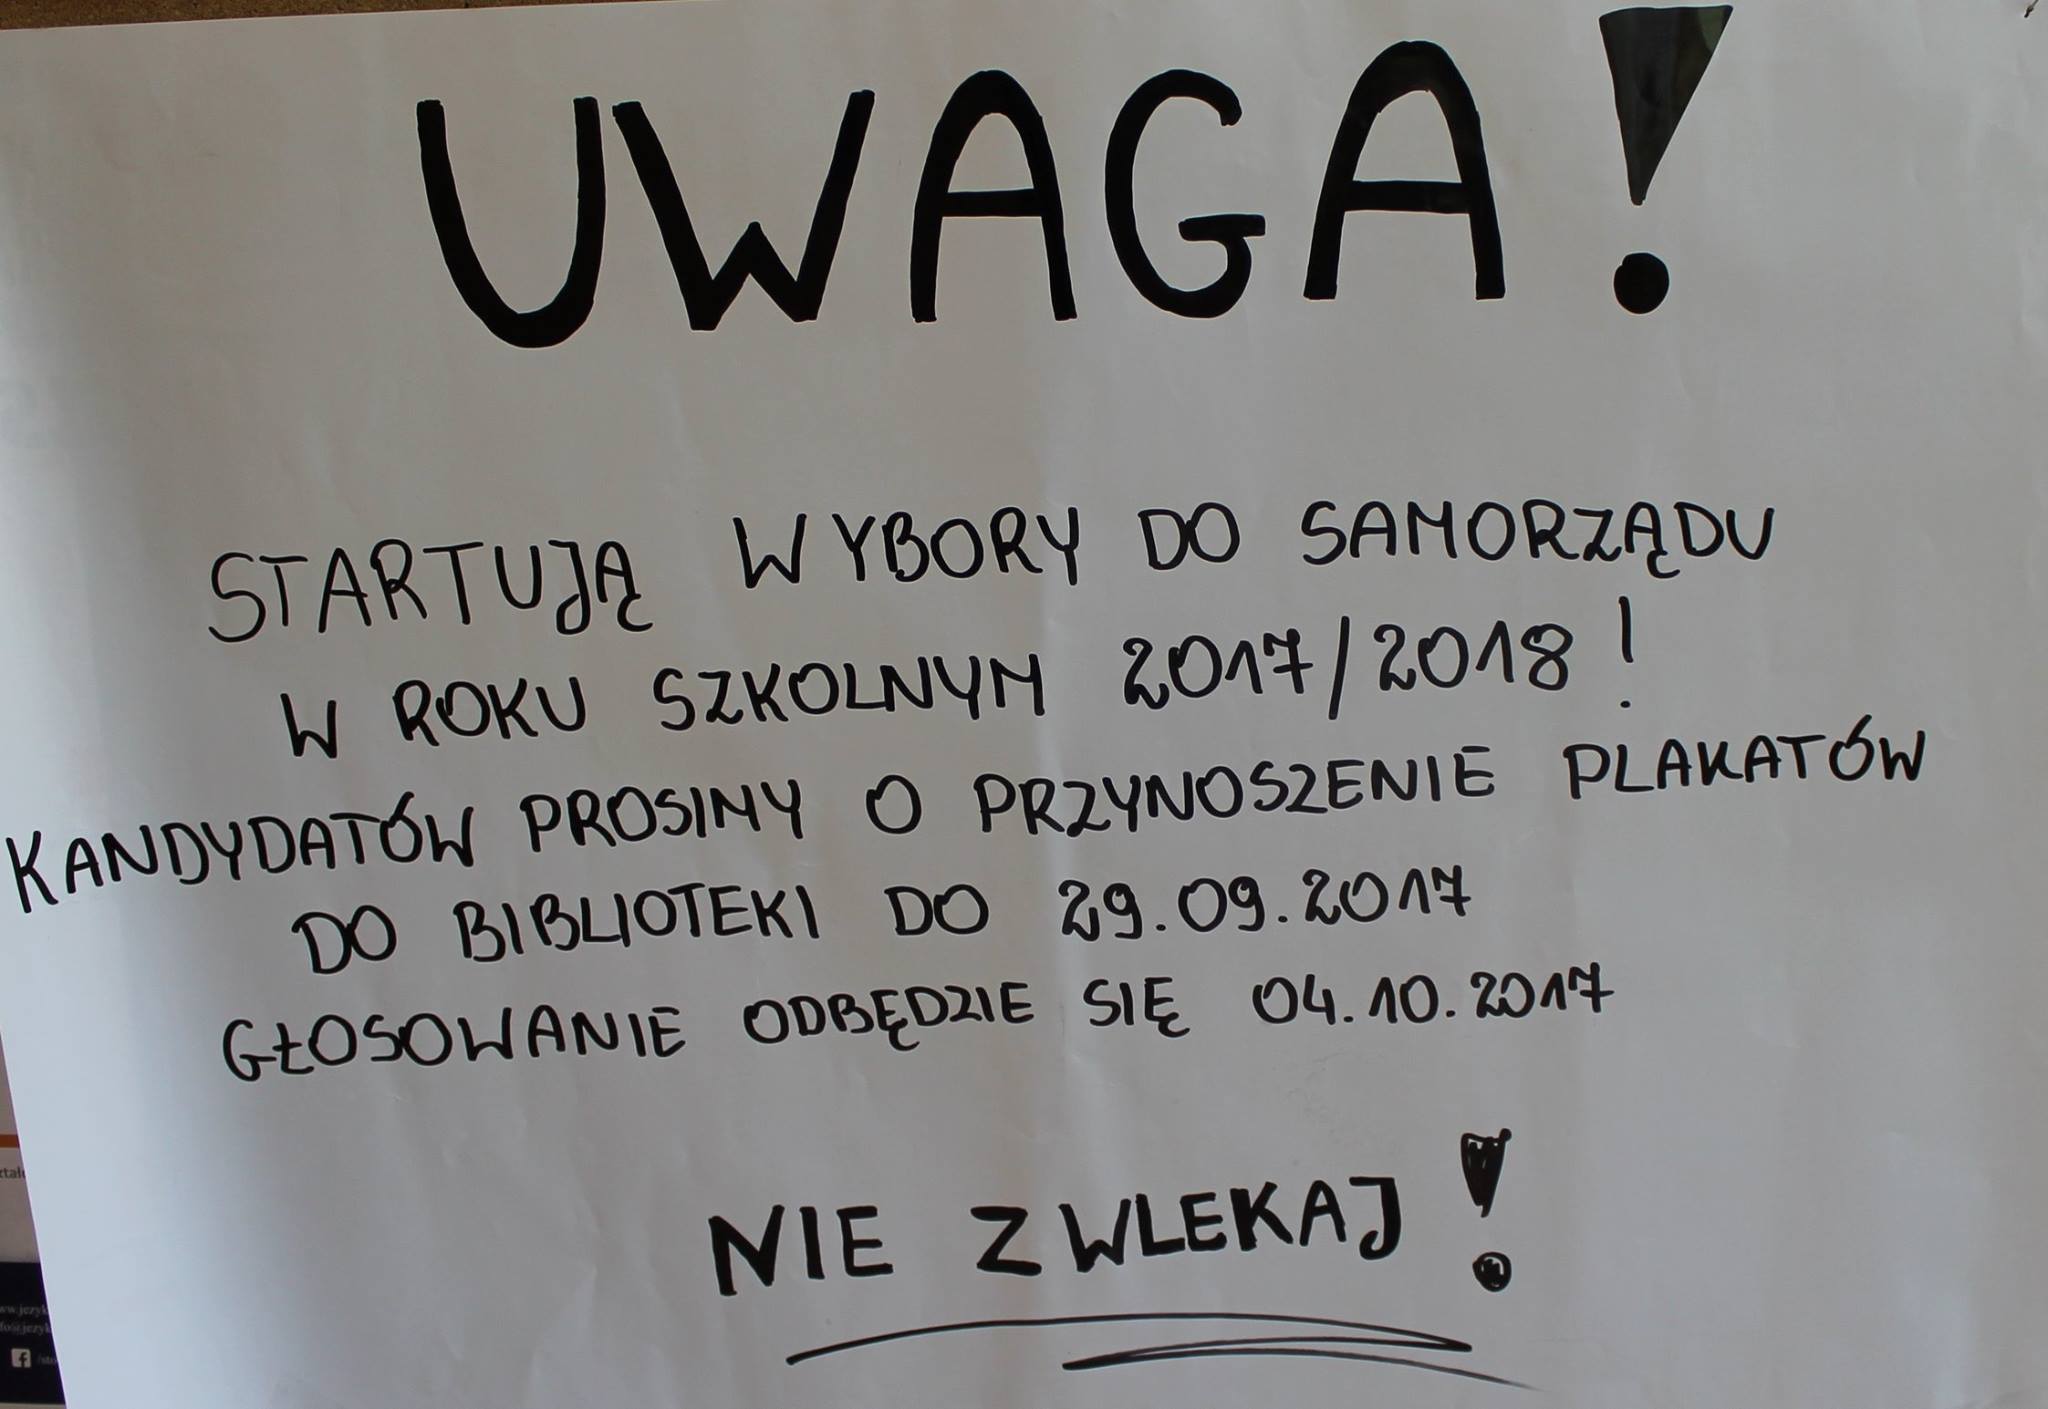 UWAGA!
STARTUJĄ WYBORY DO SAMORZĄDU
W ROKU SZKOLNYM 2017/2018!
KANDYDATÓW PROSIMY O PRZYNOSZENIE PLAKATÓW
DO BIBLIOTEKI DO 29.09.2017
GŁOSOWANIE ODBĘDZIE SIĘ 04.10.2017
NIE ZWLEKAJ!